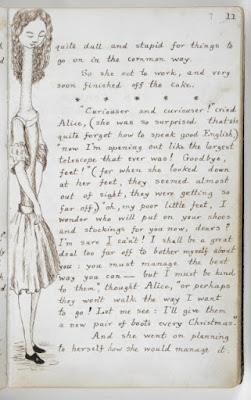 11
quite dull and stupid for things to
go on in the common way.
So she set to work, and very
soon finished off the cake.
* * * * * *
"Curiouser and curiouser!" cried
Alice, (she was so surprised that she
quite forgot how to speak good English,)
"now I'm opening out like the largest
telescope that ever was! Goodbye,
feet!" (for when she looked down
at her feet, they seemed almost
out of sight, they were getting so
far off,) "oh, my poor little feet, I
wonder who will put on your shoes
and stockings for you now, dears?
I'm sure I can't! I shall be a great
deal too far off to bother myself about
you: you must manage the best
way you can — but I must be kind
to them," thought Alice, "or perhaps
they won't walk the way I want
to go! Let me see: I'll give them
a new pair of boots every Christmas."
And she went on planning
to herself how she would manage it: